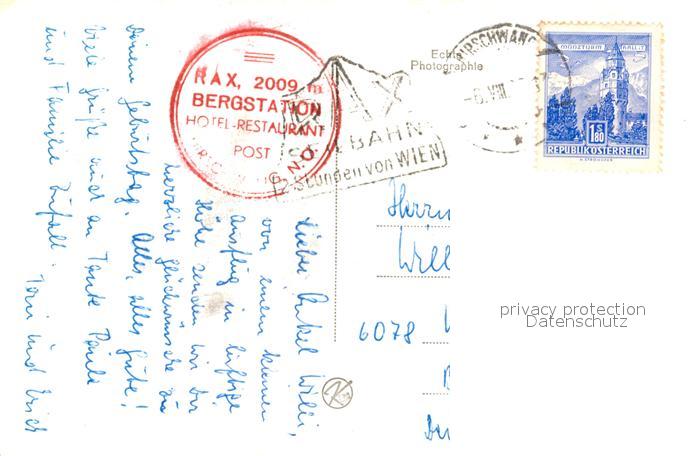 Lieber Onkel Willi,
von einem schönen
Ausflug in luftige
Höhe senden wir Dir
herzliche Glückwünsche zu
Deinem Geburtstag. Alles, alles Gute!
Viele Grüße auch an Tante Paula
und Familie Zufall. Toni und Erich
RAX, 2009 m
BERGSTATION
HOTEL-RESTAURANT
POST
N.Ö.
RAX
SEILBAHN
2 Stunden von WIEN
Echte
Photographie
HIRSCHWANG
-6.VIII.
MÜNZTURM HALL I.T.
1.80 S
REPUBLIK ÖSTERREICH
Herrn
Will
6078
privacy protection
Datenschutz